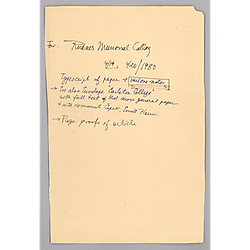 For: Rudner Memorial Colloq
4/19, 4/20/1980
Typescript of paper + various notes
→ See also envelope "Carleton College"
with full text of that more general paper
+ with comments
→ Page proofs of article